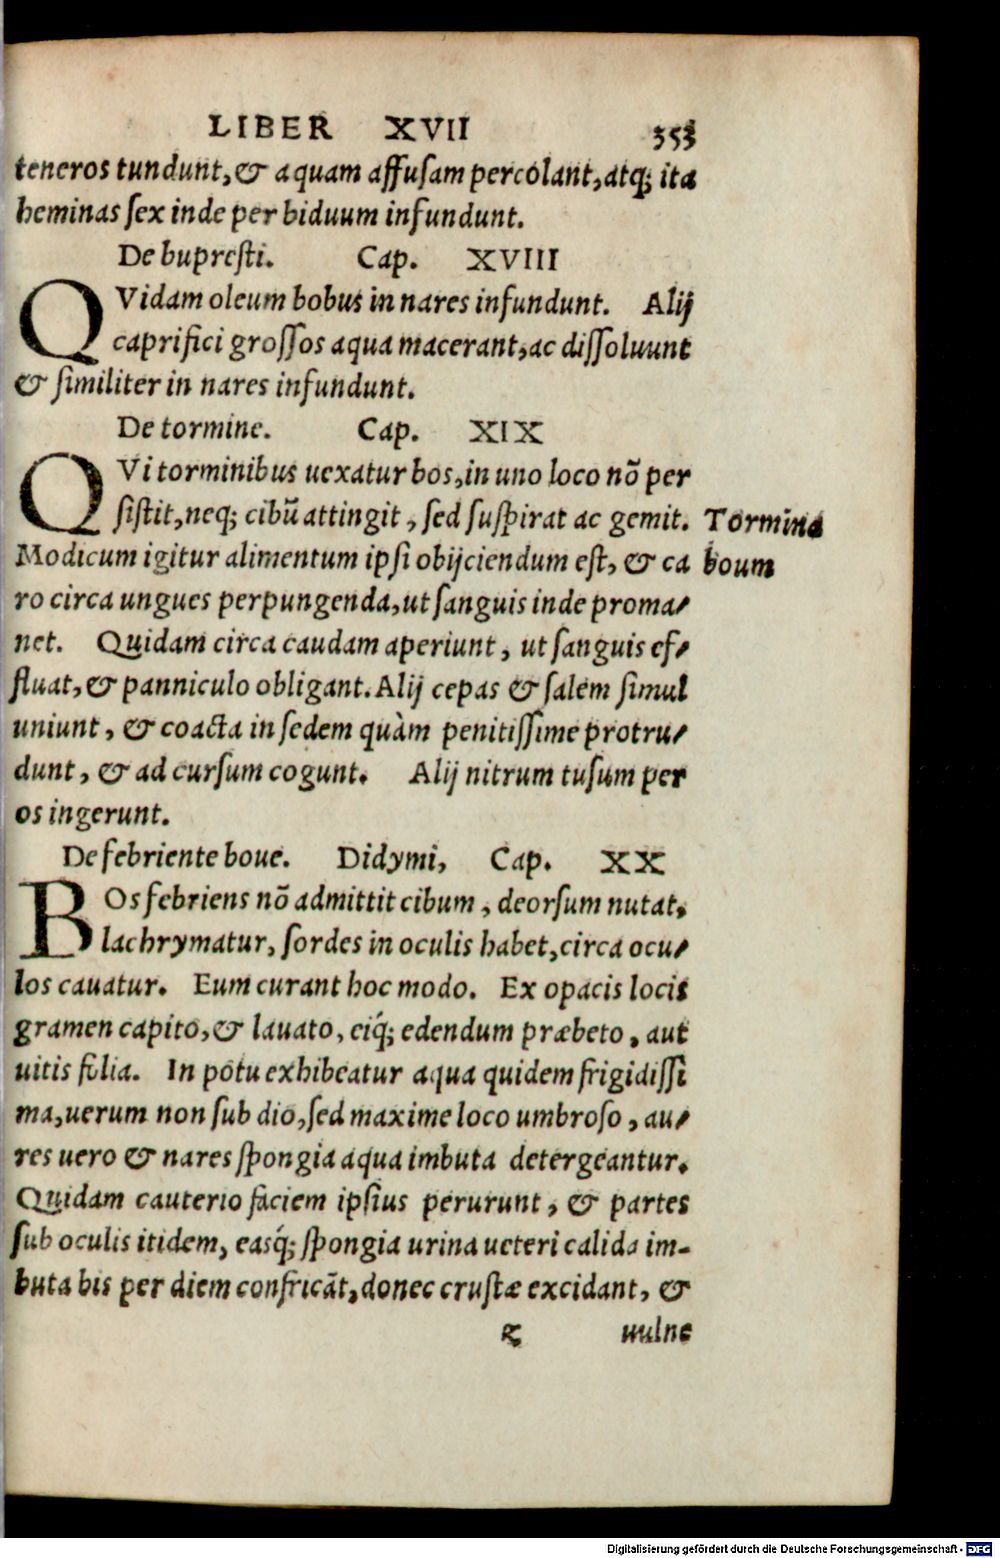 LIBER XVII 353
teneros tundunt, & aquam affuſam percolant, atq; ita
heminas ſex inde per biduum infundunt.
De bupreſti. Cap. XVIII
QVidam oleum bobus in nares infundunt. Alij
caprifici groſſos aqua macerant, ac diſſoluunt
& ſimiliter in nares infundunt.
De tormine. Cap. XIX
QVi torminibus uexatur bos, in uno loco nõ per
ſiſtit, neq; cibũ attingit, ſed ſuſpirat ac gemit. Tormina
Modicum igitur alimentum ipſi obijciendum eſt, & ca boum
ro circa ungues perpungenda, ut ſanguis inde proma/
net. Quidam circa caudam aperiunt, ut ſanguis ef/
fluat, & panniculo obligant. Alij cepas & ſalem ſimul
uniunt, & coacta in ſedem quàm penitiſſime protru/
dunt, & ad curſum cogunt. Alij nitrum tuſum per
os ingerunt.
De febriente boue. Didymi, Cap. XX
BOs febriens nõ admittit cibum, deorſum nutat,
lachrymatur, ſordes in oculis habet, circa ocu/
los cauatur. Eum curant hoc modo. Ex opacis locis
gramen capito, & lauato, eiq́; edendum præbeto, aut
uitis folia. In potu exhibeatur aqua quidem frigidiſſi
ma, uerum non ſub dio, ſed maxime loco umbroſo, au/
res uero & nares ſpongia aqua imbuta detergeantur.
Quidam cauterio faciem ipſius perurunt, & partes
ſub oculis itidem, easq́; ſpongia urina ueteri calida im-
buta bis per diem confricãt, donec cruſtæ excidant, &
uulne
Digitalisierung gefördert durch die Deutsche Forschungsgemeinschaft - DFG